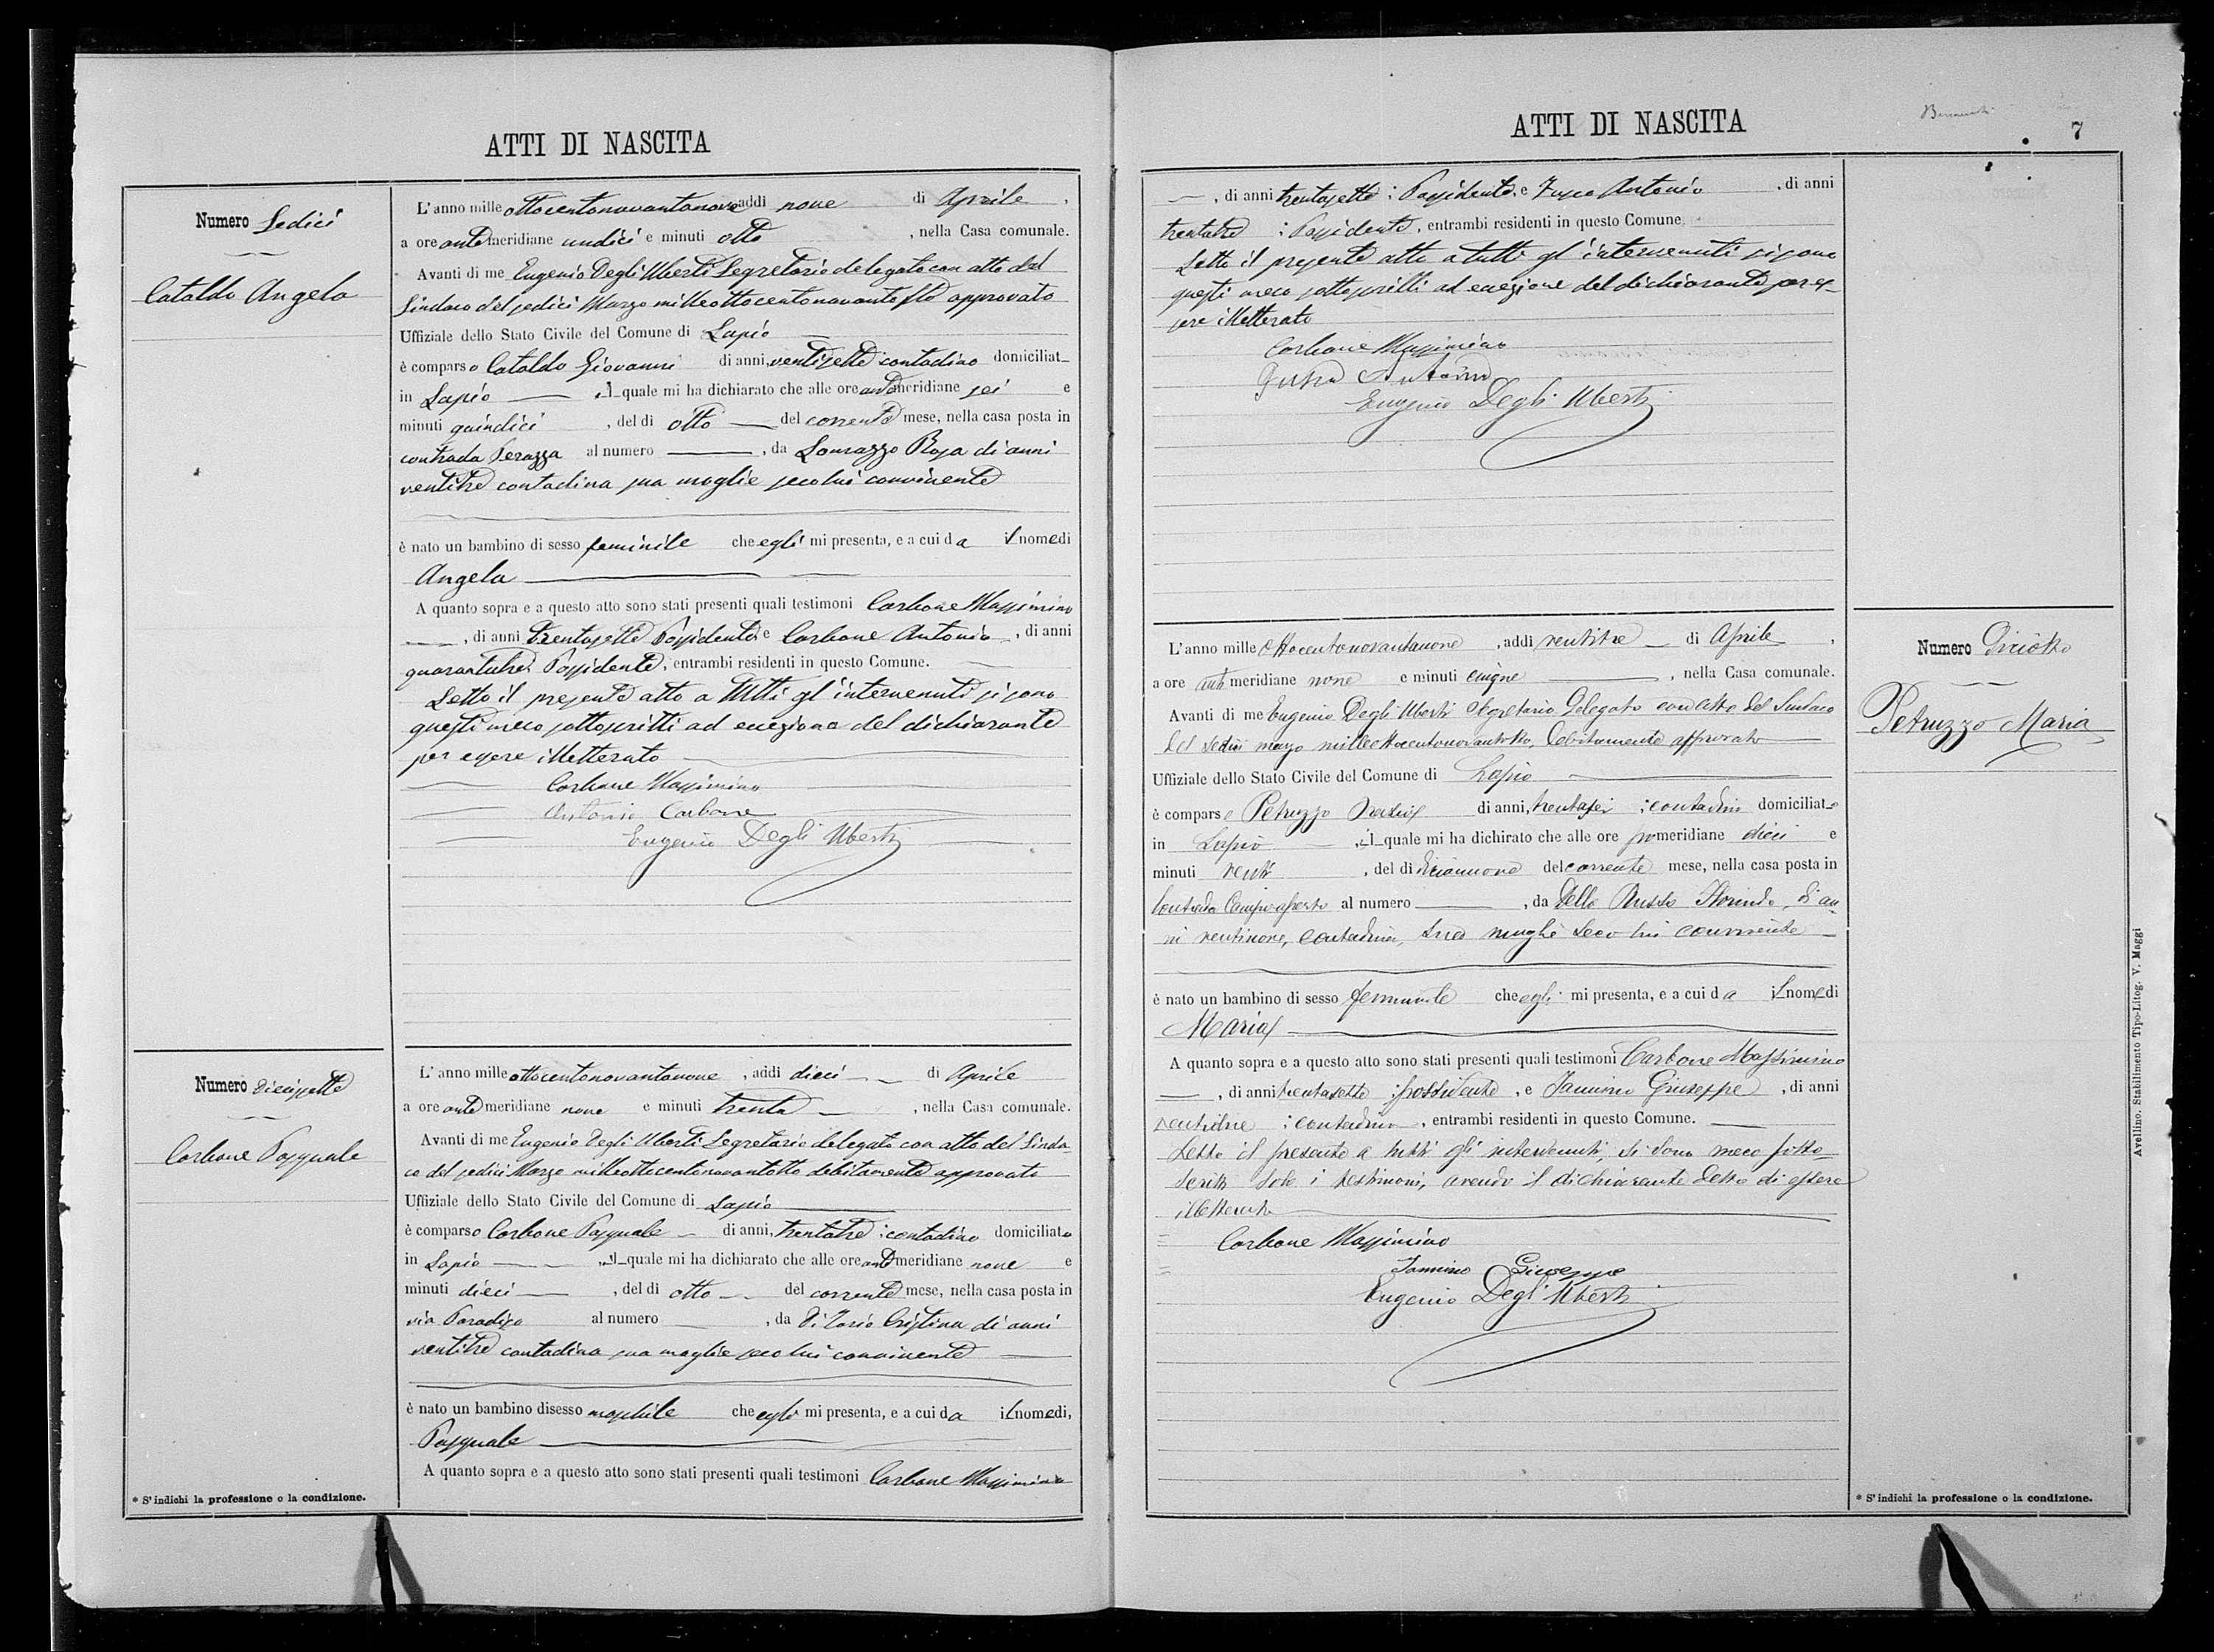 ATTI DI NASCITA
Numero Sedici
Cataldo Angela
L'anno mille ottocentonovantanove addi nove di Aprile,
a ore antemeridiane undici e minuti otto, nella Casa comunale.
Avanti di me Eugenio Degli Uberti Segretario delegato con atto del
Sindaco del sedici Marzo milleottocentonovantotto approvato
Uffiziale dello Stato Civile del Comune di Lapio
è comparso Cataldo Giovanni di anni, ventisette contadino domiciliat
in Lapio, il quale mi ha dichiarato che alle ore antemeridiane sei e
minuti quindici, del di otto del corrente mese, nella casa posta in
contrada al numero, da Rosa di anni
ventitre contadina sua moglie seco lui convivente
è nato un bambino di sesso feminile che egli mi presenta, e a cui da il nome di
Angela
A quanto sopra e a questo atto sono stati presenti quali testimoni Carbone Massimino
, di anni trentasette Possidente e Carbone Antonio, di anni
quarantatre Possidente, entrambi residenti in questo Comune.
Letto il presente atto a tutti gl'intervenuti si sono
questi meco sottoscritti ad eccezione del dichiarante
per essere illetterato
Carbone Massimino
Antonio Carbone
Eugenio Degli Uberti
Numero Diciesette
Carbone Pasquale
L'anno mille ottocentonovantanove, addi dieci di Aprile
a ore antemeridiane nove e minuti trenta, nella Casa comunale.
Avanti di me Eugenio Degli Uberti Segretario delegato con atto del Sinda-
co del sedici Marzo milleottocentonovantotto debitamente approvato
Uffiziale dello Stato Civile del Comune di Lapio
è comparso Carbone Pasquale di anni, trentatre; contadino domiciliato
in Lapio, il quale mi ha dichiarato che alle ore antemeridiane nove e
minuti dieci, del di otto del corrente mese, nella casa posta in
via Paradiso al numero, da Di Iorio Cristina di anni
ventitre contadina sua moglie seco lui convivente
è nato un bambino di sesso maschile che egli mi presenta, e a cui da il nome di,
Pasquale
A quanto sopra e a questo atto sono stati presenti quali testimoni Carbone Massimino
* S'indichi la professione o la condizione.
ATTI DI NASCITA
7
, di anni trentasette; Possidente, e Antonio, di anni
trentatre; Possidente, entrambi residenti in questo Comune
Letto il presente atto a tutti gl'intervenuti si sono
questi meco sottoscritti ad eccezione del dichiarante per es-
sere illetterato
Carbone Massimino
Antonio
Eugenio Degli Uberti
Numero Diciotto
Petruzzo Maria
L'anno mille ottocentonovantanove, addi ventitre di Aprile,
a ore antimeridiane nove e minuti cinque, nella Casa comunale.
Avanti di me Eugenio Degli Uberti Segretario Delegato con atto del Sindaco
del sedici marzo milleottocentonovantotto, debitamente approvato
Uffiziale dello Stato Civile del Comune di Lapio
è comparso Petruzzo di anni, trentasei; contadino domiciliato
in Lapio, il quale mi ha dichirato che alle ore pomeridiane dieci e
minuti venti, del di diciannove del corrente mese, nella casa posta in
Contrada Campo aperto al numero, da Dello Russo Florinda, di an-
ni ventinove, contadina, sua moglie seco lui convivente
è nato un bambino di sesso femminile che egli mi presenta, e a cui da il nome di
Maria
A quanto sopra e a questo atto sono stati presenti quali testimoni Carbone Massimino
, di anni trentasette; possidente, e Iannino Giuseppe, di anni
ventidue; contadino, entrambi residenti in questo Comune.
Letto il presente a tutti gli intervenuti, si sono meco sotto-
scritti solo i testimoni, avendo il dichiarante detto di essere
illetterato
Carbone Massimino
Iannino Giuseppe
Eugenio Degli Uberti
* S'indichi la professione o la condizione.
Avellino. Stabilimento Tipo-Litog. V. Maggi